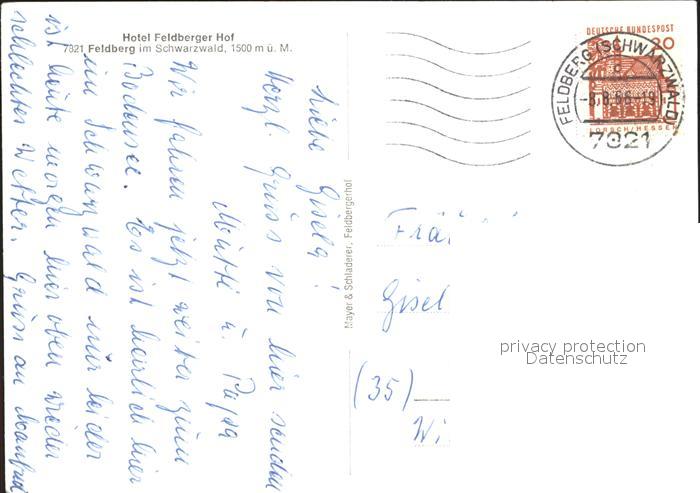 Hotel Feldberger Hof
7821 Feldberg im Schwarzwald, 1500 m ü. M.
Liebe Gisela!
Herzl. Grüss von hier senden
Mutti u. Papa
Wir fahren jetzt weiter zum
Bodensee. Es ist herrlich hier
im Schwarzwald nur leider
ist heute morgen hier oben wieder
schlechtes Wetter. Gruss an Manfred
Mayer & Schladerer, Feldbergerhof
DEUTSCHE BUNDESPOST
20
LORSCH/HESSEN
FELDBERG (SCHWARZWALD)
-8.8.66-19
7821
Frä
Gisel
(35)
Wi
privacy protection
Datenschutz